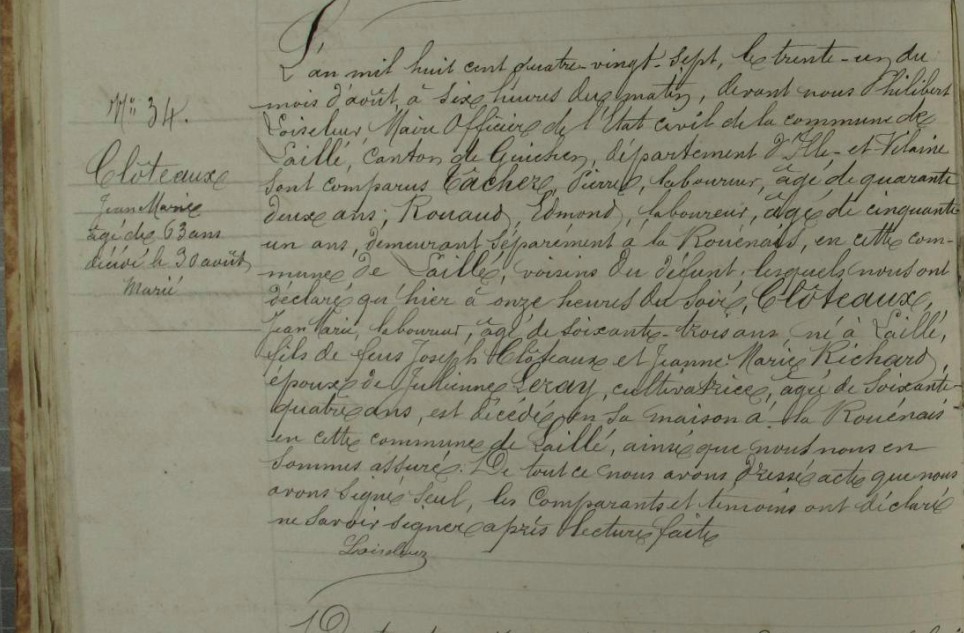 N° 34.
Clôteaux
Jean Marie
âgé de 63 ans
décédé le 30 août
Marié
L'an mil huit cent quatre-vingt-sept, le trente-un du
mois d'août, à six heures du matin, devant nous Philibert
Loiseleur Maire Officier de l'Etat civil de la commune de
Laillé, Canton de Guichen, département d'Ille-et-Vilaine
sont comparus Tâcher, Pierre, laboureur, âgé de quarante
deux ans; Rouaud, Edmond, laboureur, âgé de cinquante
un ans, demeurant séparément à la Rouénais, en cette com-
mune de Laillé, voisins du défunt. lesquels nous ont
déclaré qu'hier à onze heures du soir, Clôteaux,
Jean Marie, laboureur, âgé de soixante-trois ans né à Laillé,
fils de feus Joseph Clôteaux et Jeanne Marie Richard,
époux de Jullienne Leray, cultivatrice, âgée de soixante-
quatre ans, est décédé en sa maison à la Rouénais
en cette commune de Laillé, ainsi que nous nous en
sommes assuré. De tout ce nous avons dressé acte que nous
avons signé seul, les comparants et témoins ont déclaré
ne savoir signer après lecture faite
Loiseleur